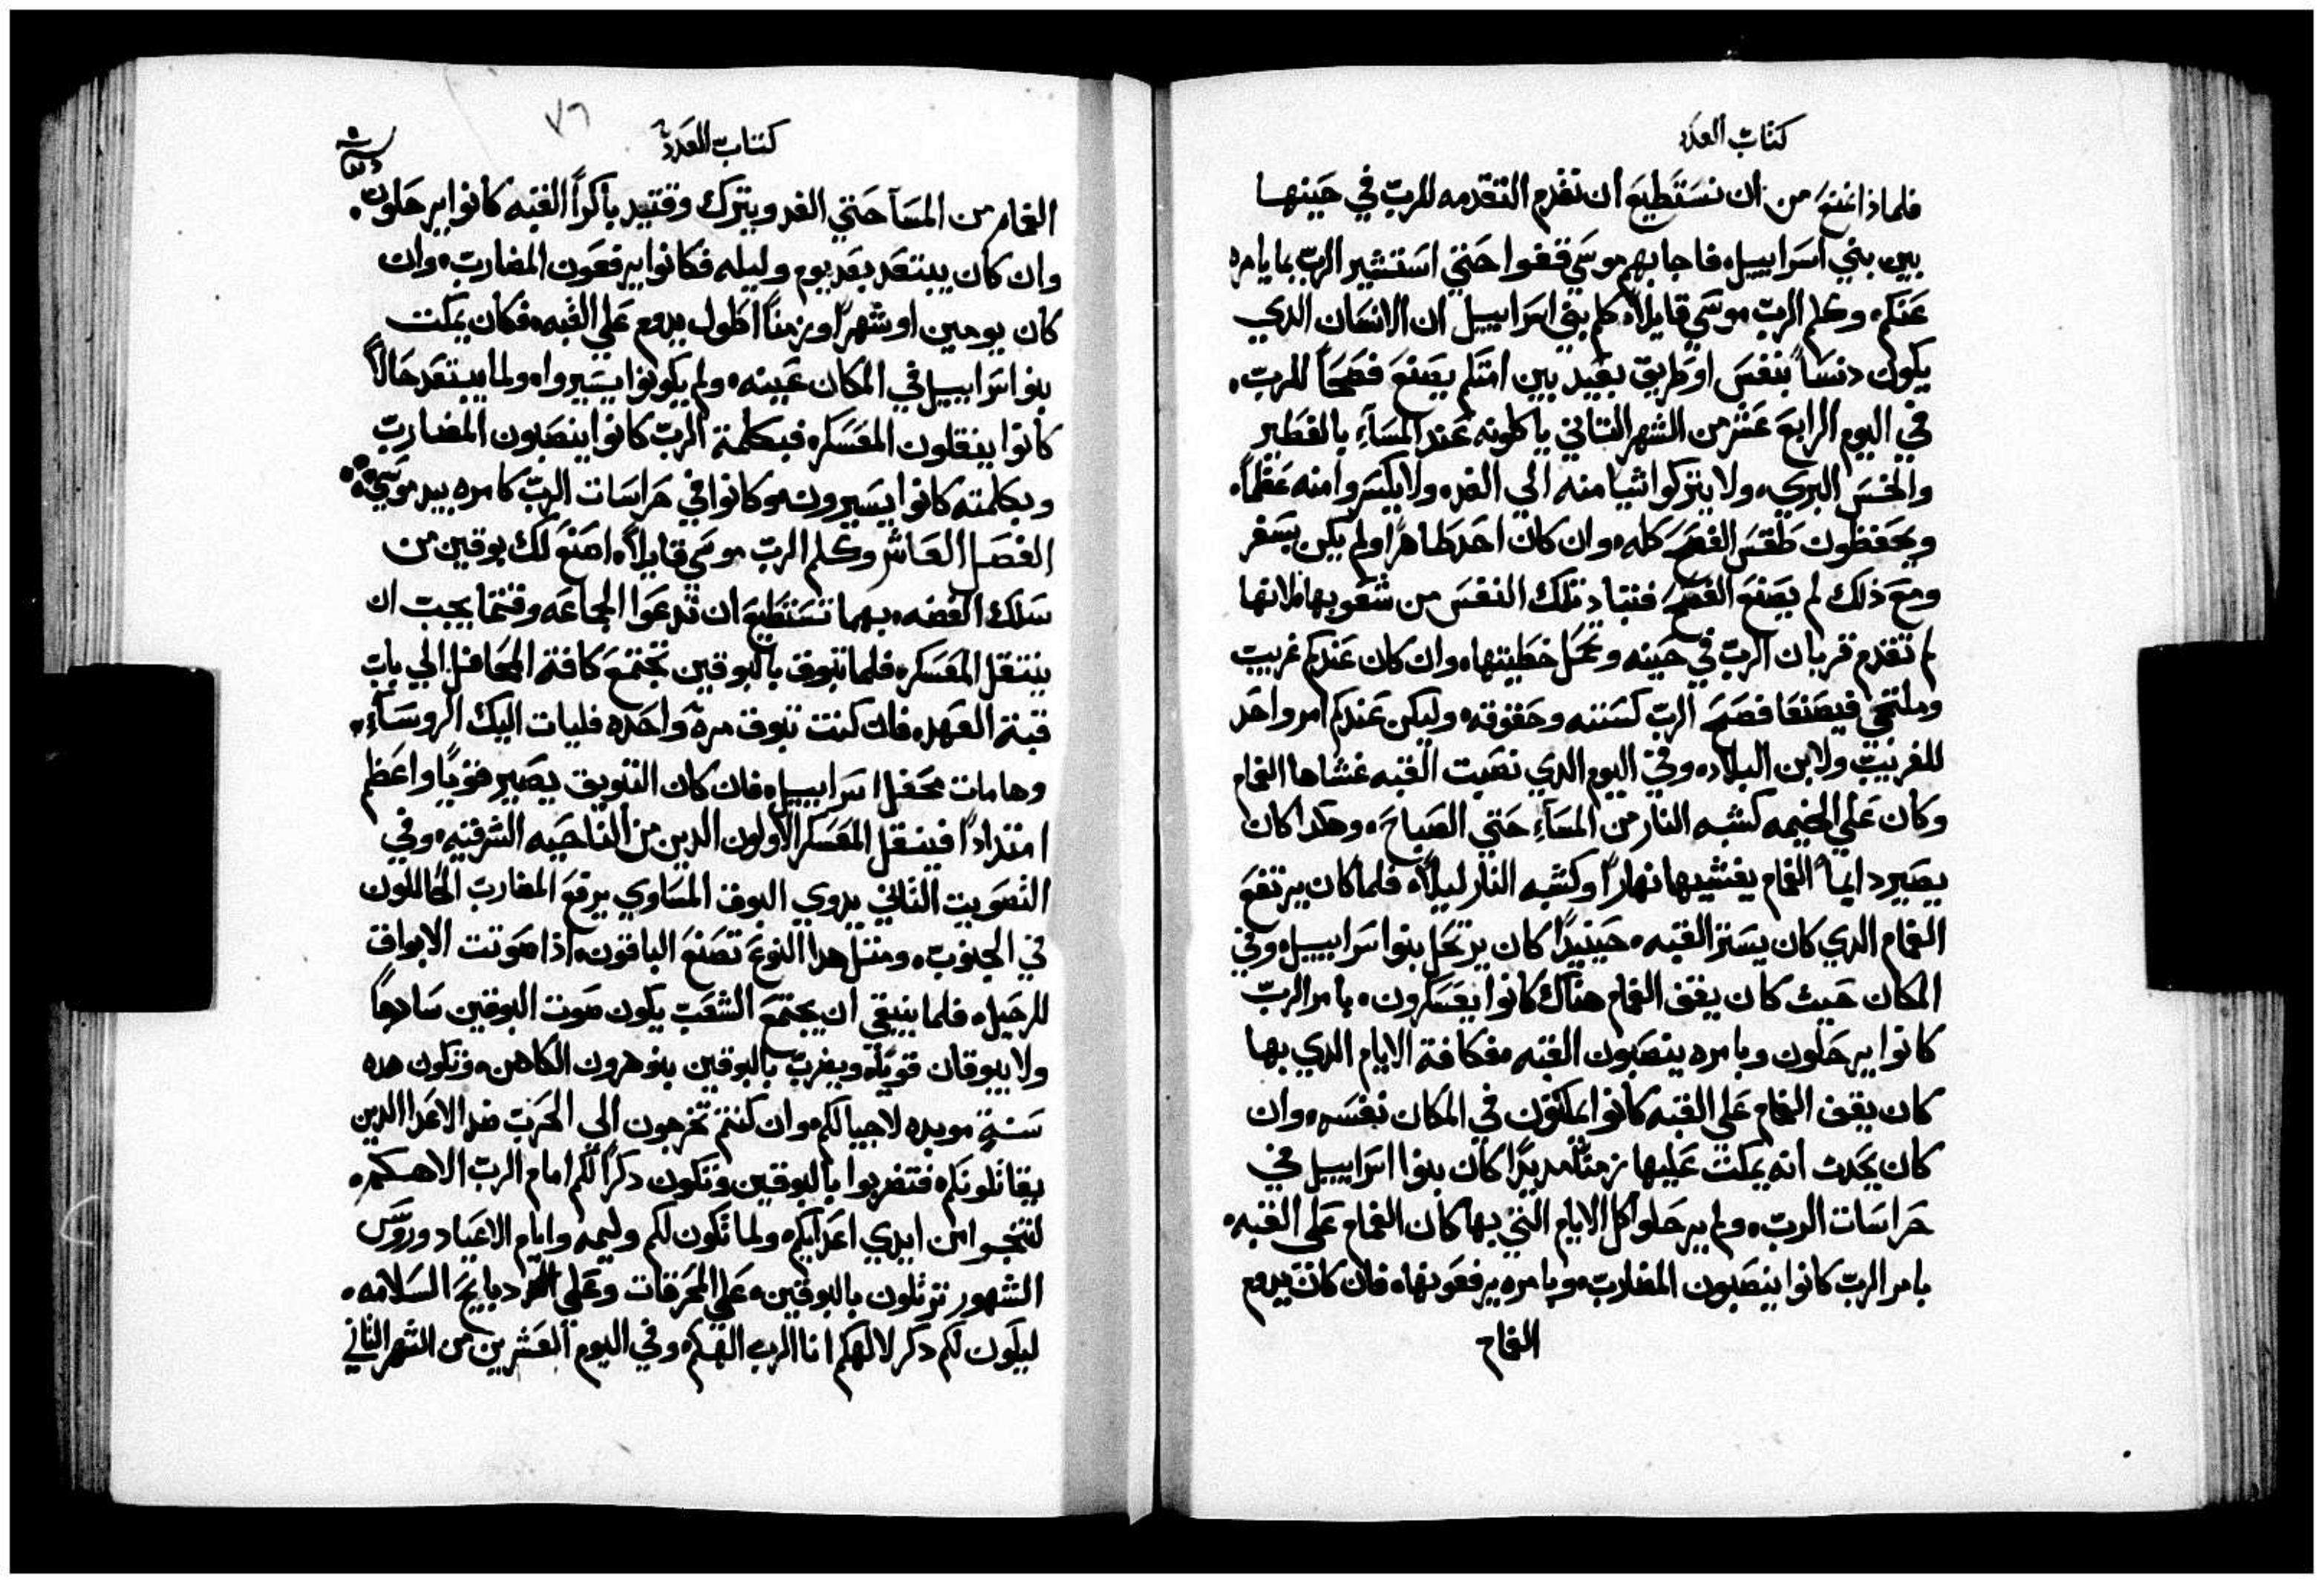 كتاب العدد
فلماذا نمنع من ان نستطيع ان نقدم التقدمه للربّ في حينها
بين بني اسراييل، فاجابهم موسي قفوا حتي استشير الربّ بما يامره
عنكم، وكلم الربّ موسي قايلاً، كلم بني اسراييل ان الانسان الدي
يكون دنساً بنفس او طريق بعيد بين امتكم يصنع فصحاً للربّ،
في اليوم الرابع عشر من الشهر التاني ياكلونه عند المسآء بالفطير
والخس البري، ولا يتركوا شيا منه الي الغد، ولا يكسروا منه عظماً،
ويحفظون طقس الفصح كله، وان كان احد طاهراً ولم يكن بسفر
ومع ذلك لم يصنع الفصح فتباد تلك النفس من شعوبها، لانها
لم تقدم قربان الربّ في حينه وتحمل خطيتها، وان كان عندكم غريب
وملتجي فيصنعا فصح الربّ كسننه وحقوقه، وليكن عندكم امر واحد
للغريب ولابن البلاد، وفي اليوم الدي نصبت القبه غشاها الغمام
وكان علي الخيمه كشبه النار من المسآء حتي الصباح، وهكدا كان
يصير دايماً الغمام يغشيها نهاراً وكشبه النار ليلاً، فلما كان يرتفع
الغمام الدي كان يستر القبه، حينيداً كان يرتحل بنوا سراييل، وفي
المكان حيث كان يقف الغمام هناك كانوا يعسكرون، بامر الربّ
كانوا يرحلون وبامره ينصبون القبه، فكافة الايام الدي بها
كان يقف الغمام علي القبه كانوا يمكثون في المكان نفسه، وان
كان يحدث انه يمكث عليها زمناً مديداً كان بنوا اسراييل في
حراسات الربّ، ولم يرحلوا كل الايام التي بها كان الغمام علي القبه،
بامر الربّ كانوا ينصبون المضارب، وبامره يرفعونها، فان كان يدوم
الغمام
كتاب العدد
٧٦
الغمام من المسآ حتي الغد ويترك وقتيد باكراً القبه كانوا يرحلون،
وان كان يبتعد بعد يوم وليله فكانوا يرفعون المضارب، وان
كان يومين او شهراً او زمناً اطول يدوم علي القبه، فكان يمكث
بنوا سراييل في المكان عينه، ولم يكونوا يسيروا، ولما يبتعد حالاً
كانوا ينقلون المعسكر، فبكلمة الربّ كانوا ينصبون المضارب
وبكلمته كانوا يسيرون، وكانوا في حراسات الربّ كامره بيد موسي
الفصل العاشر وكلم الربّ موسي قايلاً، اصنع لك بوقين من
سلك الفضه، بهما تستطيع ان تدعوا الجماعه وقتما يجب ان
ينتقل المعسكر، فلما تبوق بالبوقين تجتمع كافة المحافل الي باب
قبة العهد، فان كنت تبوق مرة واحده فليات اليك الروسآء،
وهامات محفل اسراييل، فان كان التبويق يصير قوياً واعظم
امتداداً فينقل المعسكر الاولون الدين من الناحيه الشرقيه، وفي
التصويت الثاني يدوي البوق المساوي يرفع المضارب الحاللون
في الجنوب، ومثل هدا النوع تصنع الباقون، اذا صوتت الابواق
للرحيل، فلما ينبغي ان يجتمع الشعب يكون صوت البوقين سادجاً
ولا يبوقان قوة، ويضرب بالبوقين بنو هرون الكاهن، وتكون هده
سنة موبده لاجيالكم، وان كنتم تخرجون الي الحرب ضد الاعدا الدين
يقاتلونكم، فتضربوا بالبوقين وتكون دكراً لكم امام الربّ الاهكم،
لتنجوا من ايدي اعدايكم، ولما تكون لكم وليمه وايام الاعياد وروس
الشهور ترتلون بالبوقين، علي المحرقات وعلي دبايح السلامه،
ليكون لكم دكر لالهكم انا الرب الهكم، وفي اليوم العشرين من الشهر الثاني